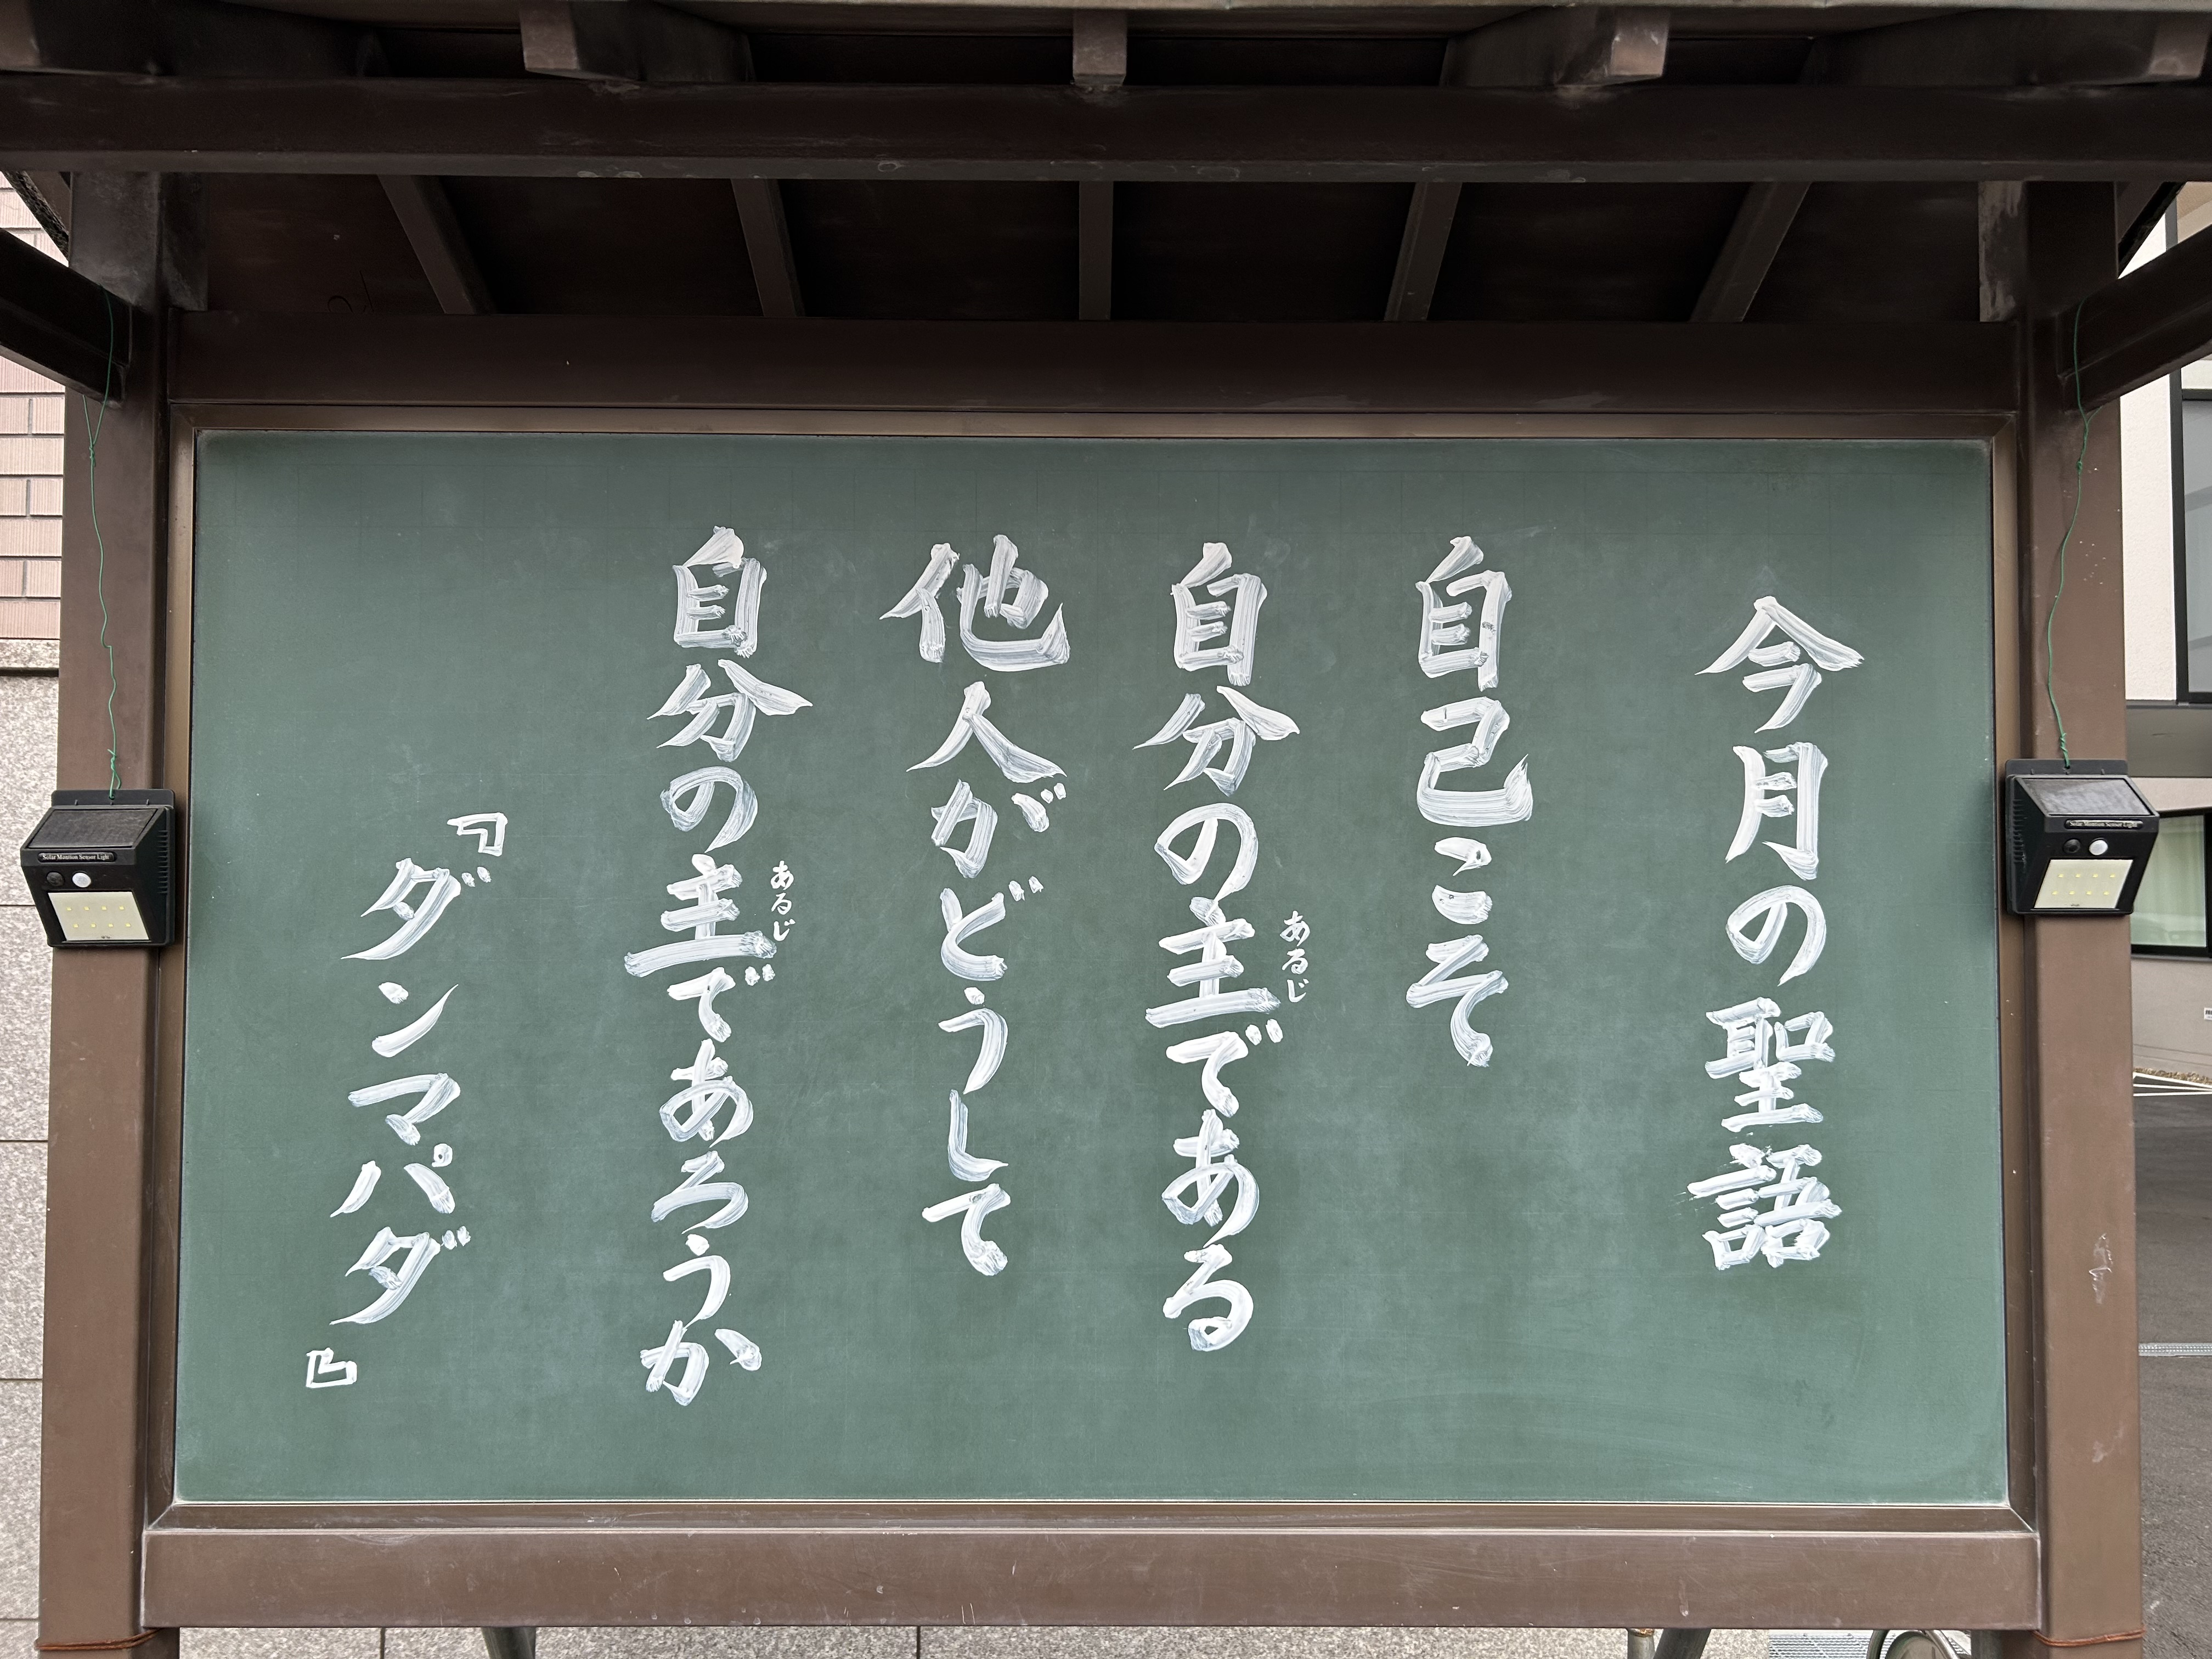 今月の聖語
自己こそ
自分の主である
あるじ
他人がどうして
自分の主であろうか
あるじ
『ダンマパダ』
Solar Momtion Sensor Light
Solar Momtion Sensor Light